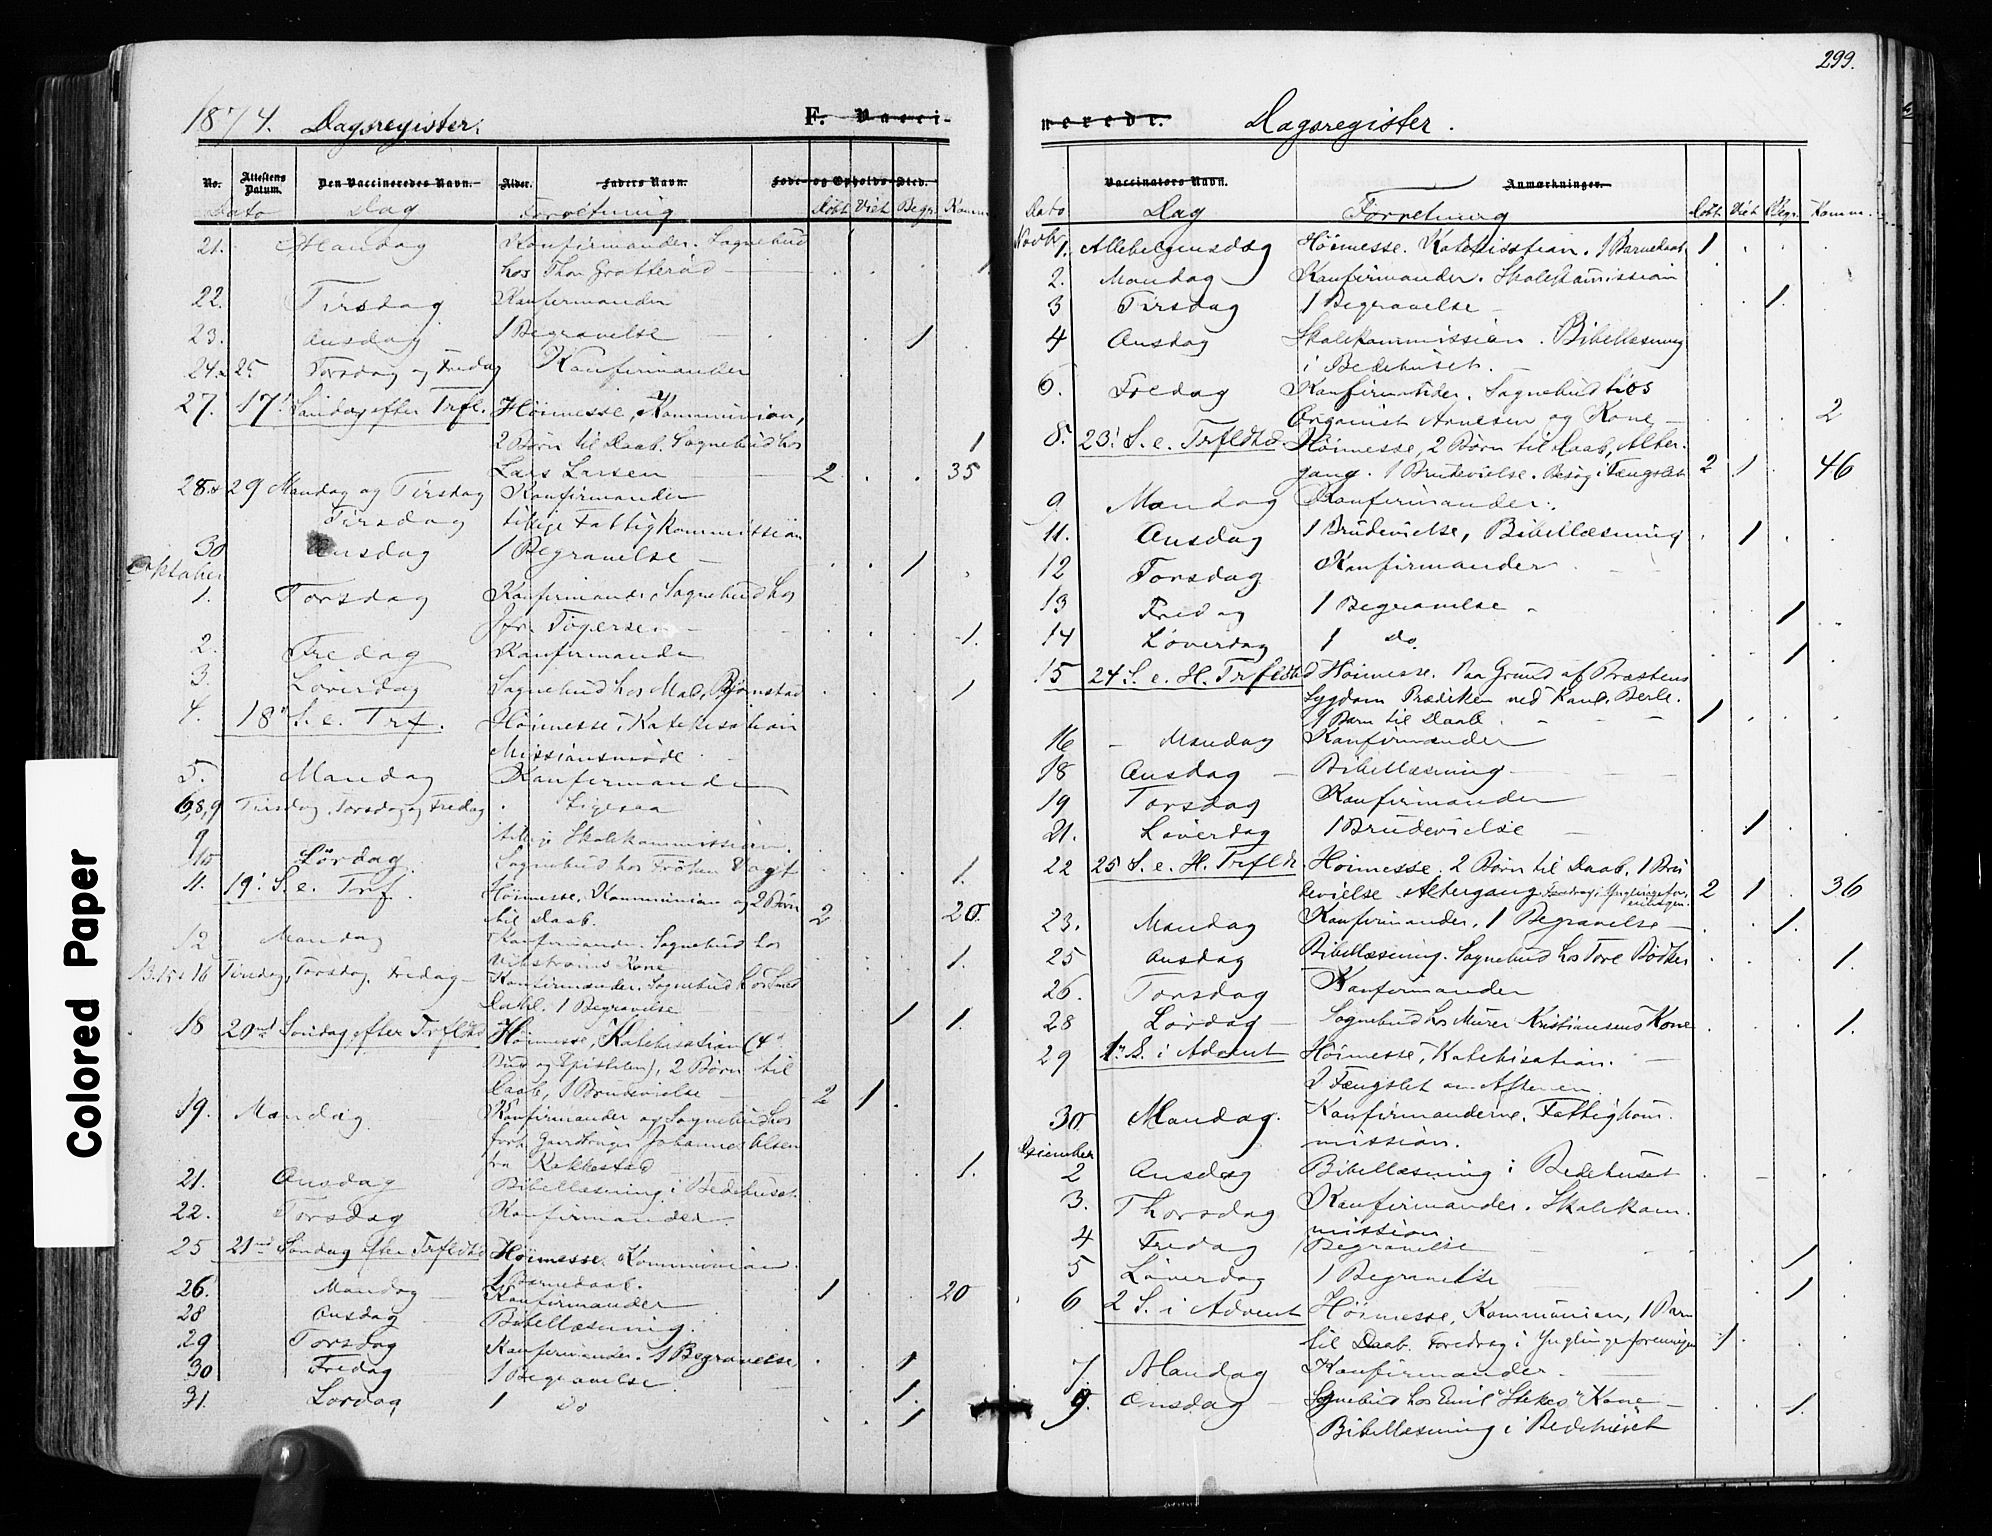 1874. Dagsregister.
F. Vacci-
No.
Attestens Datum.
Den Vaccineredes Navn.
Alder.
Faders Navn.
Føde- og Opholds-Sted.
Dato Dag Forretning Døbt Viet Begr. Komm.
21. Mandag Konfirmander. Sognebud
hos Thor Grotterød 1
22. Tirsdag Konfirmander
23. Onsdag 1 Begravelse 1
24 & 25 Torsdag og Fredag Konfirmander
27. 17' Søndag efter Trfl. Høimesse, Kommunion,
2 Børn til Daab. Sognebud hos 1
Lars Larsen 2 35
28 & 29 Mandag og Tirsdag Konfirmander
Tirsdag tillige Fattigkommission
30 Onsdag 1 Begravelse 1
Oktober
1. Torsdag Konfirmander, Sognebud hos
Jfr. 1
2. Fredag Konfirmander
3. Løverdag Sognebud hos Mad. Bjørnstad 1
4. 18' S. e. Trf. Høimesse, Katekisation
Missionsmøde
5. Mandag Konfirmander
6, 8, 9 Tirsdag, Torsdag og Fredag Ligesaa
9 tillige Skolekommission.
10 Lördag Sognebud hos Fröken Vogt 1.
11. 19' S. e. Trf. Høimesse, Kommunion og 2 Børn
til Daab. 2 20.
12 Mandag Konfirmander. Sognebud hos
Vikstrøms Kone 1.
13. 15 & 16 Tirsdag, Torsdag, Fredag Konfirmander. Sognebud hos
Dahl. 1 Begravelse 1 1.
18 20nd Søndag efter Trfldtd Høimesse, Katekisation (4d
Bud og Epistelen), 2 Børn til
Daab, 1 Brudevielse 2 1
19. Mandag Konfirmander og Sognebud hos
forh. Gaardbruger Johannes Olsen
fra Kokkestad 1.
21. Onsdag Bibellæsning i Bedehuset
22. Torsdag Konfirmander.
25 21nd Søndag efter Trfldtd Høimesse. Kommunion.
1 Barnedaab. 1 20
26. Mandag Konfirmander
28 Onsdag Bibellæsning.
29 Torsdag Konfirmander. 1 Begravelse 1
30 Fredag 1 Begravelse. 1.
31. Lørdag 1 Do 1
299.
nerede.
Dagsregister.
Vaccinators Navn.
Anmærkninger.
Dato Dag Forretning Døbt. Viet Begr. Komm.
Novbr
1. Allehelgensdag Høimesse. Katekisation. 1 Barnedaab 1
2. Mandag Konfirmander. Skolekommission
3 Tirsdag 1 Begravelse 1.
4 Onsdag Skolekommission. Bibellæsning
i Bedehuset.
6. Fredag Konfirmander. Sognebud hos
Organist Arnesen og Kone 2
8. 23' S. e. Trfldtd Høimesse, 2 Børn til Daab, Alter-
gang. 1 Brudevielse. Besøg i Fængslet 2 1 46
9 Mandag Konfirmander.
11. Onsdag 1 Brudevielse, Bibellæsning 1
12 Torsdag Konfirmander
13 Fredag 1 Begravelse 1
14 Løverdag 1 Do. 1
15 24. S. e. H. Trfldtd Høimesse. Paa Grund af Præstens
Sygdom Prædiken ved Kand. Berle.
1 Barn til Daab 1
16 Mandag Konfirmander
18 Onsdag Bibellæsning
19 Torsdag Konfirmander
21. Løverdag 1 Brudevielse 1
22 25 S. e. H. Trfldt. Høimesse. 2 Børn til Daab, 1 Bru
devielse Altergang. Foredrag i Ynglingefor-
eningen 2 1 36
23. Mandag Konfirmander, 1 Begravelse 1.
25 Onsdag Bibellæsning. Sognebud hos Tore Bödker 1.
26. Torsdag Konfirmander
28 Lørdag Sognebud hos Murer Kristiansens Kone 1.
29 1' S. i Advent Høimesse, Katekisation.
I Fængslet om Aftenen
30 Mandag. Konfirmanderne. Fattigkom-
mission.
December
2 Onsdag Bibellæsning i Bedehuset
3. Thorsdag Konfirmander. Skolekom-
mission
4 Fredag 1 Begravelse 1
5 Løverdag 1 Begravelse 1
6 2 S. i Advent Høimesse, Kommunion, 1 Barn
til Daab. Foredrag i Ynglingeforeningen 1
7. Mandag Konfirmander.
9. Onsdag Sognebud hos Emil Kone 1.
Bibellæsning i Bedehuset
Colored Paper